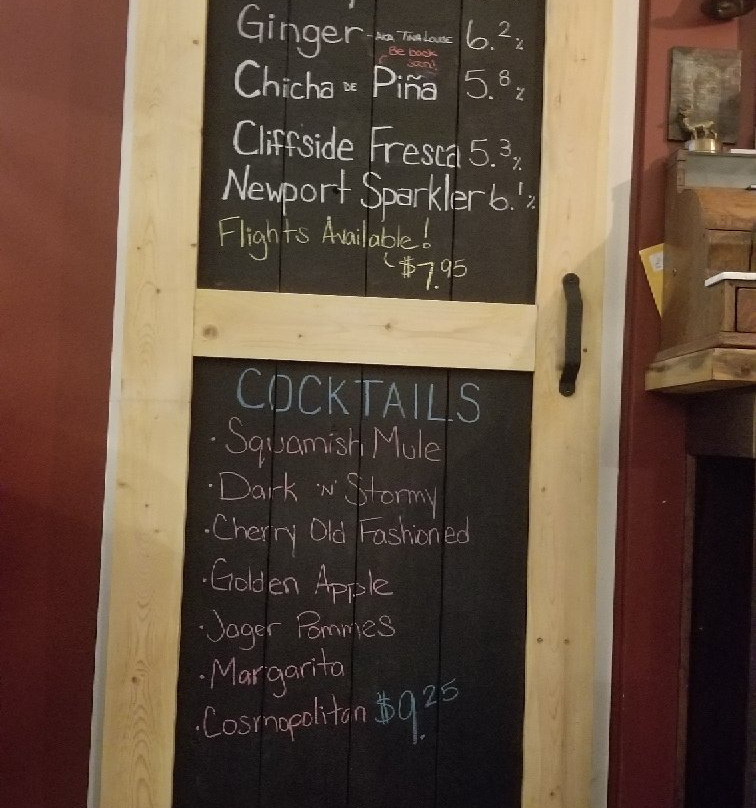 Ginger - AKA TINA LOUISE 6.2%
Be back soon!
Chicha DE Piña 5.8%
Cliffside Fresca 5.3%
Newport Sparkler 6.1%
Flights Available!
$7.95
COCKTAILS
· Squamish Mule
· Dark 'N' Stormy
· Cherry Old Fashioned
· Golden Apple
· Jager Pommes
· Margarita
· Cosmopolitan $9.25